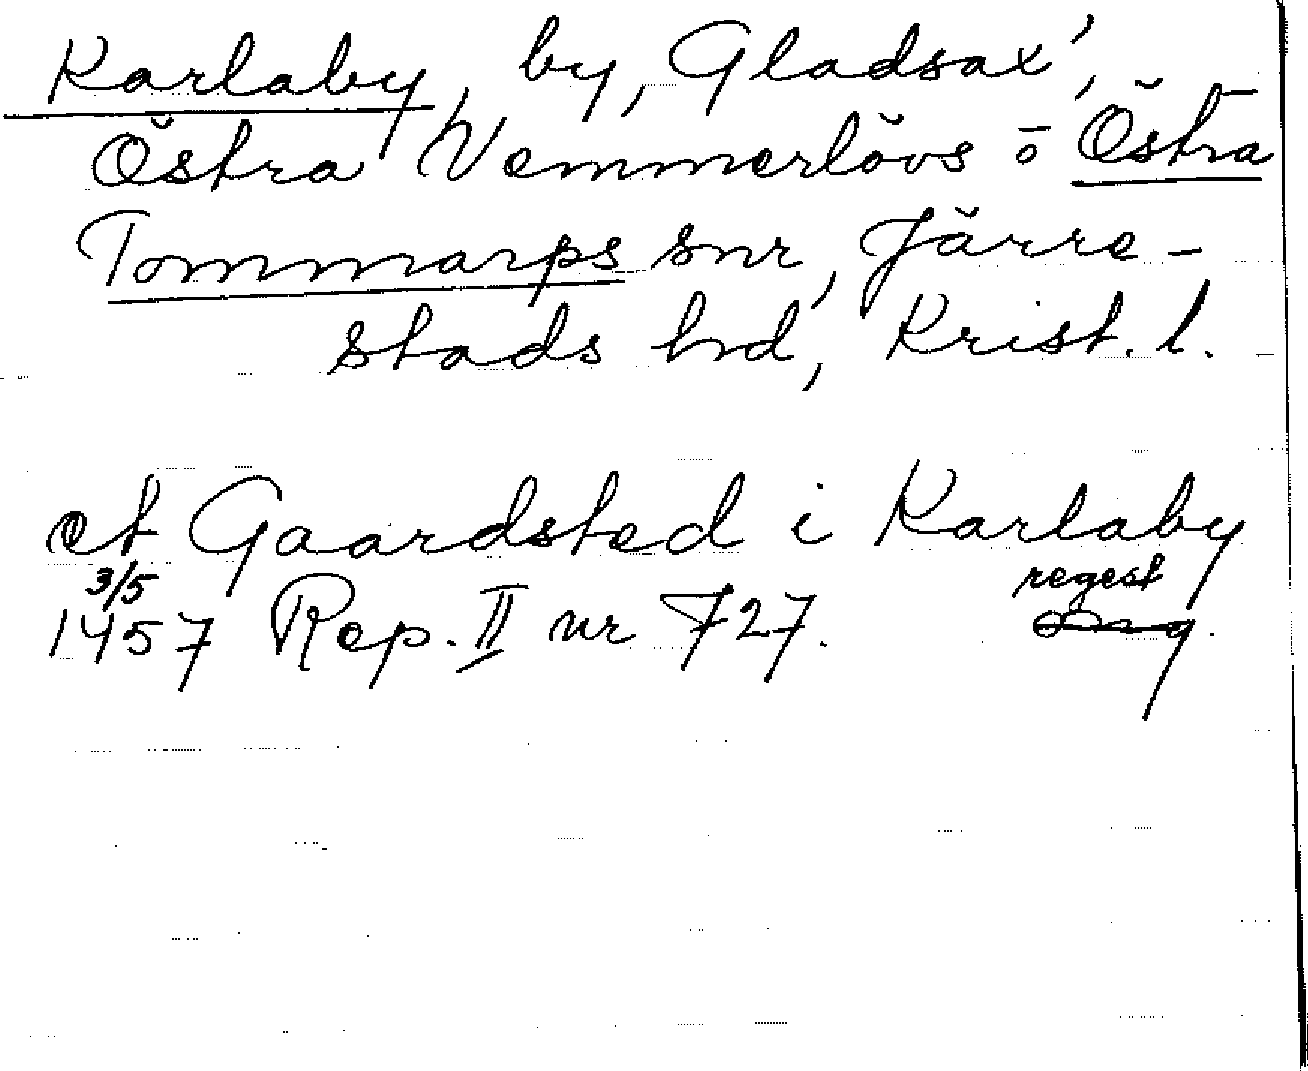 Karlaby, by, Gladsax',
Östra Vemmerlövs o Östra
Tommarps snr, Järre-
stads hd, Krist. l.
et Gaardsted i Karlaby
3/5 regest
1457 Rep. II nr 727.